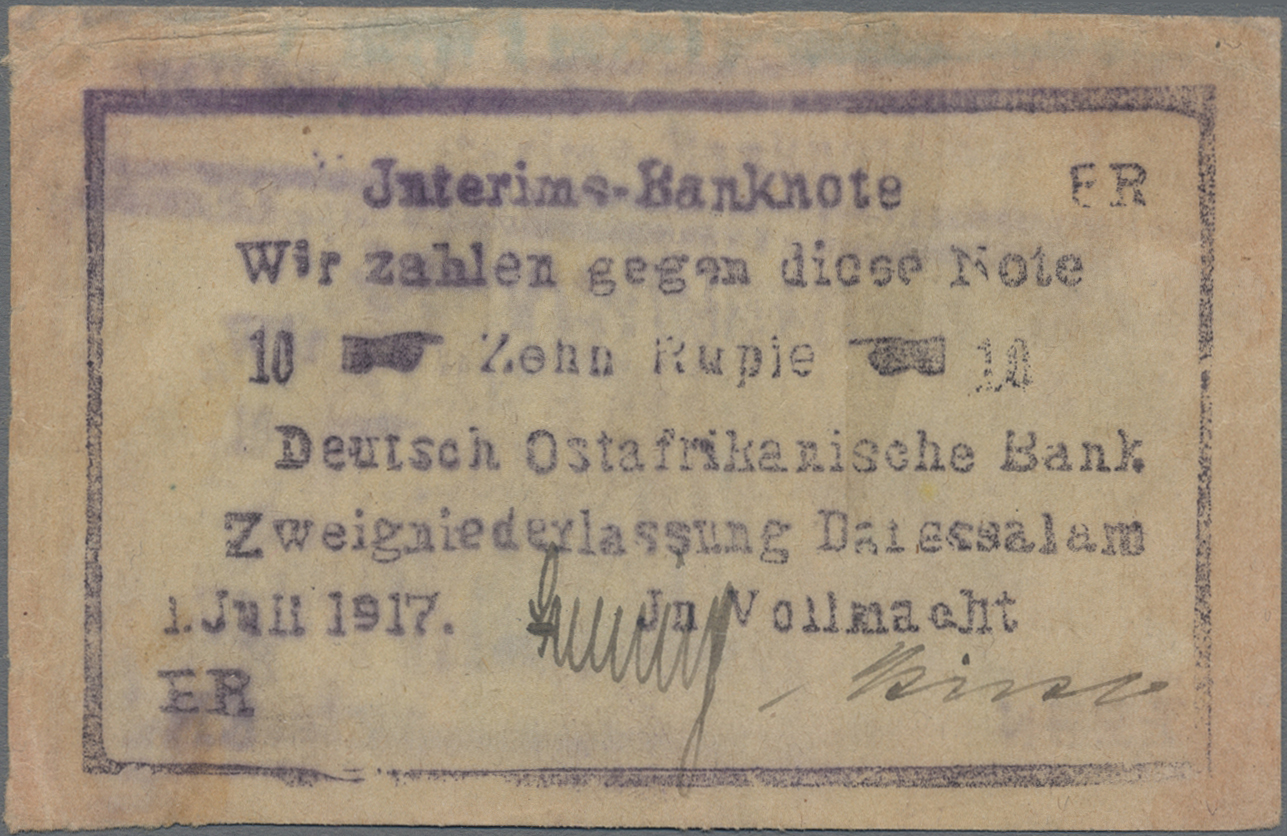 Jnterims-Banknote ER
Wir zahlen gegen diese Note
10 Zehn Rupie 10
Deutsch Ostafrikanische Bank
Zweigniederlassung Daressalam
1.Juli 1917. Jn Vollmacht
ER